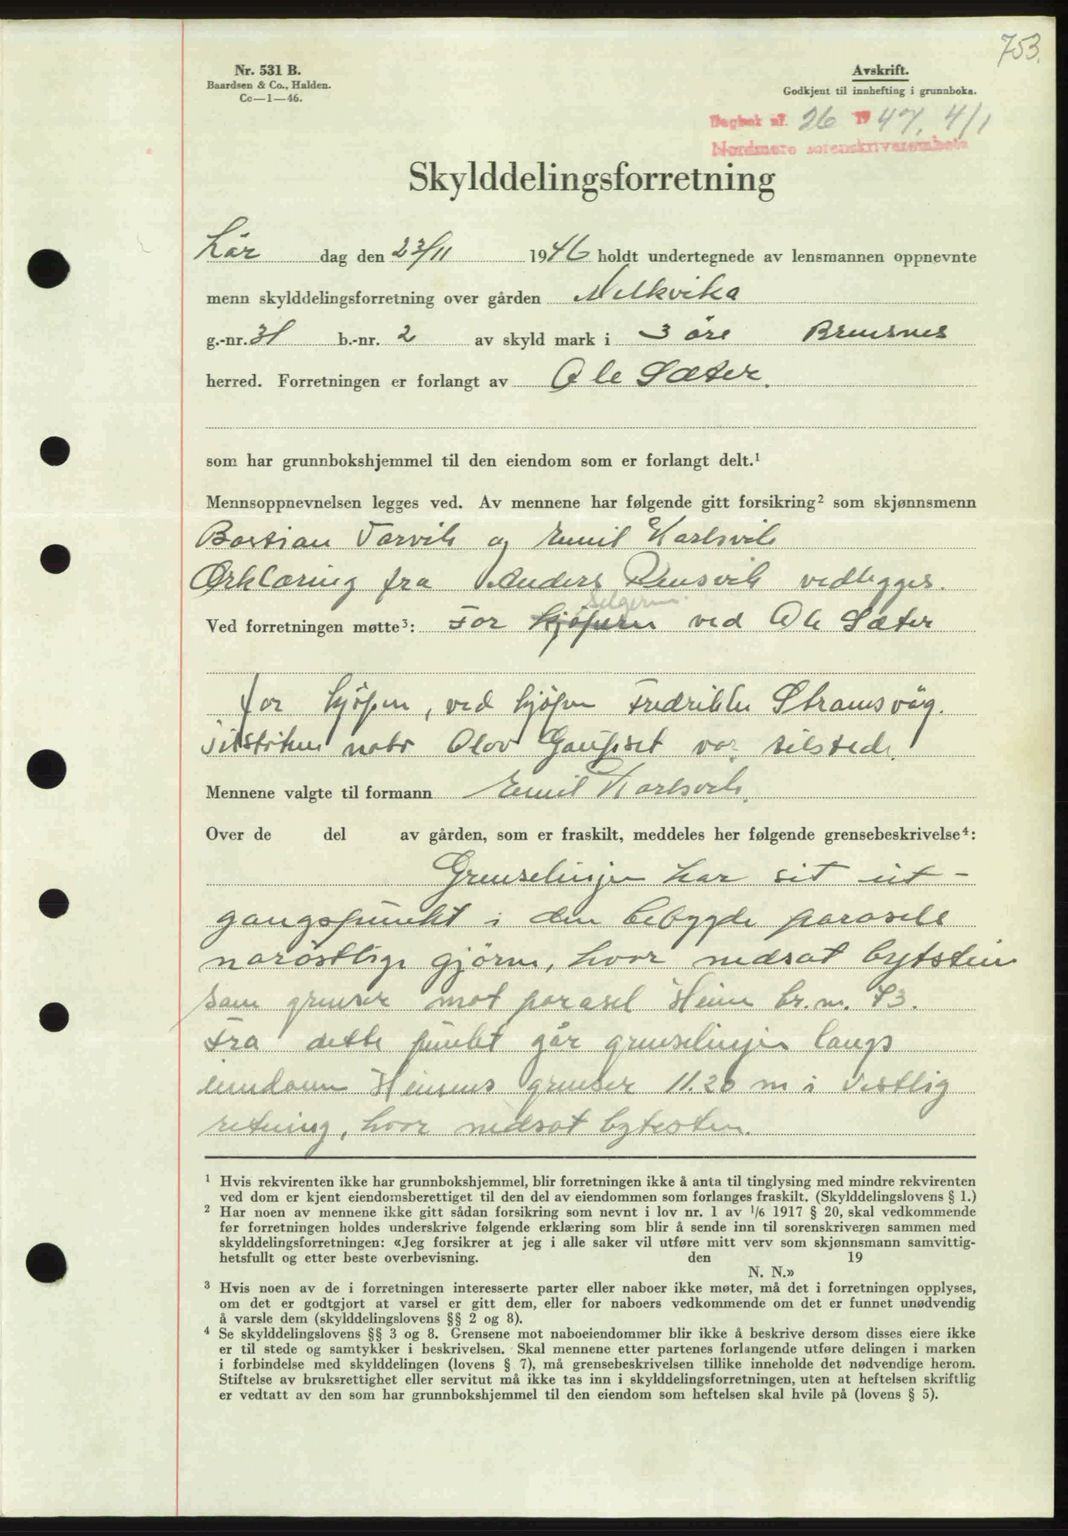 753.
Nr. 531 B.
Baardsen & Co., Halden.
Cc—1—46.
Avskrift.
Godkjent til innhefting i grunnboka.
Dagbok nr. 26 1947, 4/1
Nordmøre sorenskriverembete
Skylddelingsforretning
Lör dag den 23/11 1946 holdt undertegnede av lensmannen oppnevnte
menn skylddelingsforretning over gården Melkvika
g.-nr. 31 b.-nr. 2 av skyld mark i 3 öre Bremsnes
herred. Forretningen er forlangt av Ole Sæter.
som har grunnbokshjemmel til den eiendom som er forlangt delt.¹
Mennsoppnevnelsen legges ved. Av mennene har følgende gitt forsikring² som skjønnsmenn
Bastian Vorvik og Emil Karlsvik
Ærklæring fra Anders Ramsvik vedlegges.
selgeren.
Ved forretningen møtte³: For kjöperen ved Ole Sæter
for kjöpen, ved kjöper Fredrikke Stramsvåg.
nabo Olov Gaupset var tilstede.
Mennene valgte til formann Emil Karlsvik.
Over de del av gården, som er fraskilt, meddeles her følgende grensebeskrivelse⁴:
Grenselinjen har sit ut-
gangspunkt i den bebygde parasels
naröstlige gjörne, hvor nedsat bytstein
som grenser mot parasel Heim br. nr. 73.
Fra dette punkt går grenselinjen langs
eiendomm Heimens grenser 11.20 m i vestlig
retning, hvor nedsat bytesten.
¹ Hvis rekvirenten ikke har grunnbokshjemmel, blir forretningen ikke å anta til tinglysing med mindre rekvirenten
ved dom er kjent eiendomsberettiget til den del av eiendommen som forlanges fraskilt. (Skylddelingslovens § 1.)
² Har noen av mennene ikke gitt sådan forsikring som nevnt i lov nr. 1 av 1/6 1917 § 20, skal vedkommende
før forretningen holdes underskrive følgende erklæring som blir å sende inn til sorenskriveren sammen med
skylddelingsforretningen: «Jeg forsikrer at jeg i alle saker vil utføre mitt verv som skjønnsmann samvittig-
hetsfullt og etter beste overbevisning. den 19
N. N.»
³ Hvis noen av de i forretningen interesserte parter eller naboer ikke møter, må det i forretningen opplyses,
om det er godtgjort at varsel er gitt dem, eller for naboers vedkommende om det er funnet unødvendig
å varsle dem (skylddelingslovens §§ 2 og 8).
⁴ Se skylddelingslovens §§ 3 og 8. Grensene mot naboeiendommer blir ikke å beskrive dersom disses eiere ikke
er til stede og samtykker i beskrivelsen. Skal mennene etter partenes forlangende utføre delingen i marken
i forbindelse med skylddelingen (lovens § 7), må grensebeskrivelsen tillike inneholde det nødvendige herom.
Stiftelse av bruksrettighet eller servitut må ikke tas inn i skylddelingsforretningen, uten at heftelsen skriftlig
er vedtatt av den som har grunnbokshjemmel til den eiendom som heftelsen skal hvile på (lovens § 5).